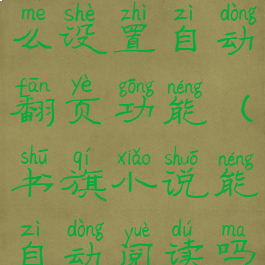 me shè zhì zì dòng
么设置自动
fān yè gōng néng
翻页功能（
shū qí xiǎo shuō néng
书旗小说能
zì dòng yuè dú ma
自动阅读吗